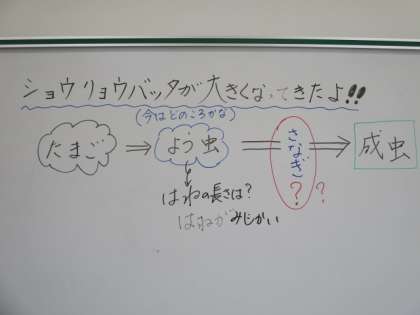 ショウリョウバッタが大きくなってきたよ!!
(今はどのころかな)
たまご ⇒ よう虫 ⇒ さなぎ? ? ⇒ 成虫
はねの長さは?
はねがみじかい